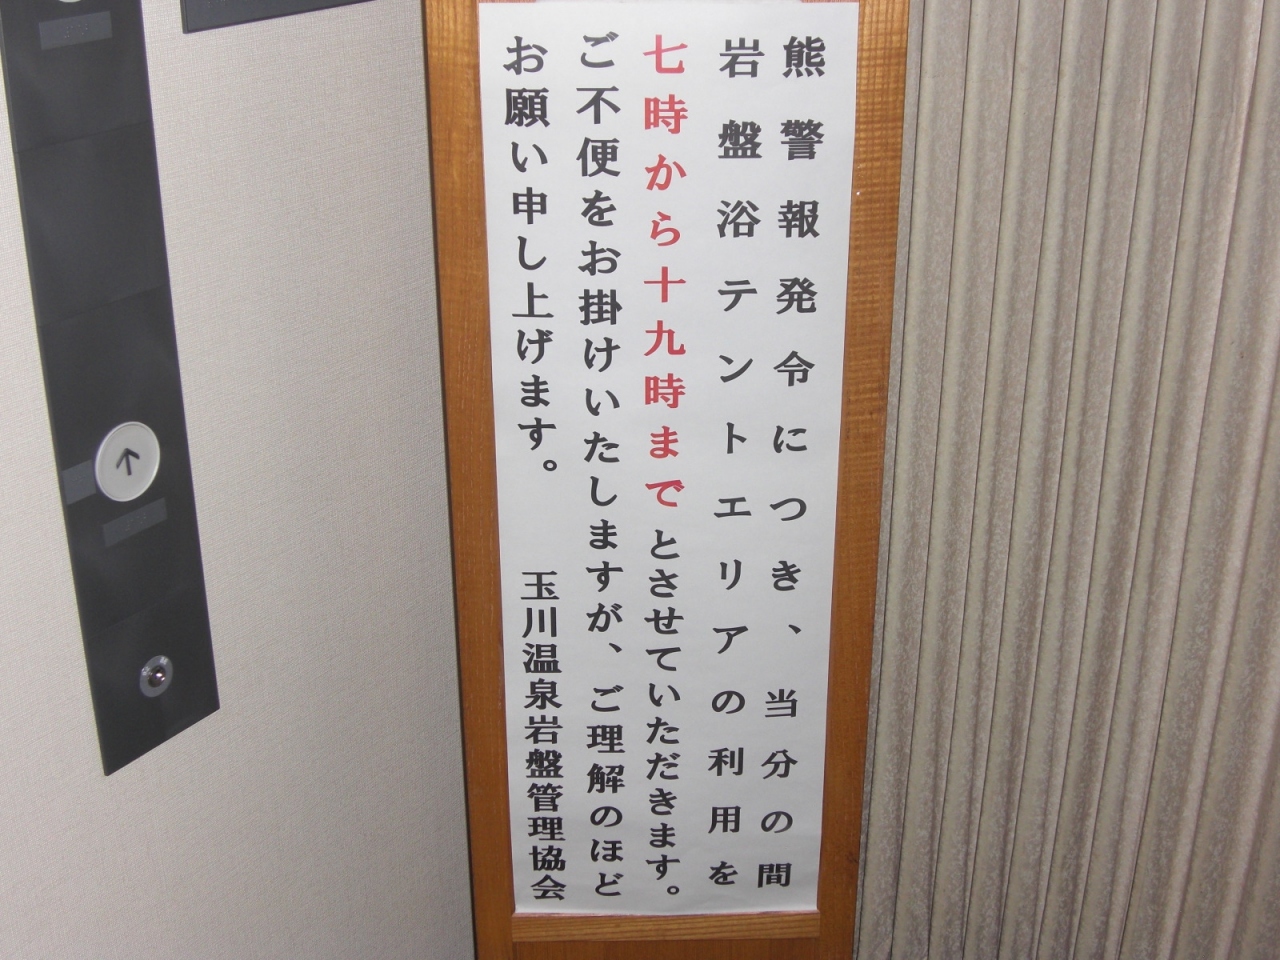 熊警報発令につき、当分の間
岩盤浴テントエリアの利用を
七時から十九時までとさせていただきます。
ご不便をお掛けいたしますが、ご理解のほど
お願い申し上げます。 玉川温泉岩盤管理協会